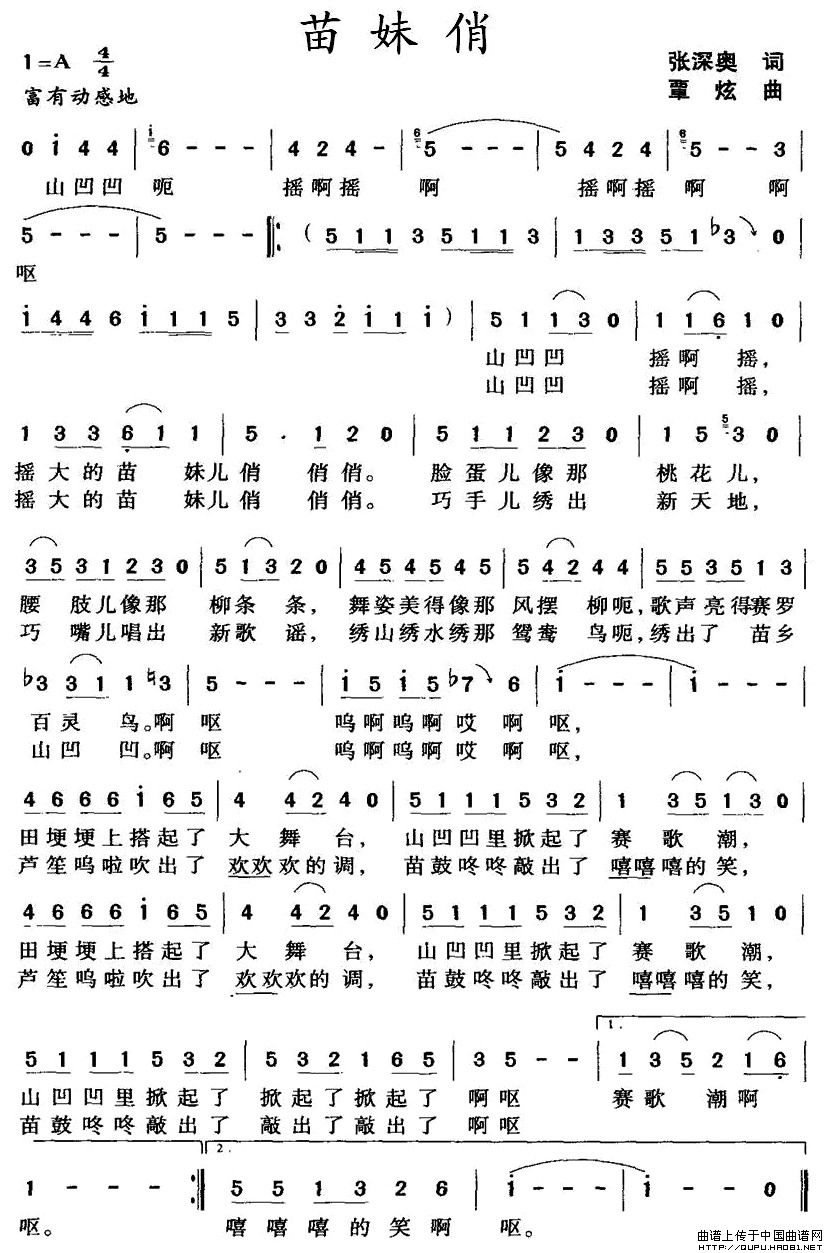 苗妹俏
1=A 4/4
张深奥 词
富有动感地
覃炫 曲
0 i 4 4 | 6 - - - | 4 2 4 - | 5 - - - | 5 4 2 4 | 5 - - 3 |
山凹凹 呃 摇啊摇 啊 摇啊摇 啊 啊
5 - - - | 5 - - - |: ( 5 1 1 3 5 1 1 3 | 1 3 3 5 1 b3 0 |
呕
i 4 4 6 i 1 1 5 | 3 3 2 i 1 i ) | 5 1 1 3 0 | 1 1 6 1 0 |
山凹凹 摇啊 摇,
山凹凹 摇啊 摇,
1 3 3 6 1 1 | 5 . 1 2 0 | 5 1 1 2 3 0 | 1 5 3 0 |
摇大的苗 妹儿俏 俏俏。 脸蛋儿像那 桃花儿,
摇大的苗 妹儿俏 俏俏。 巧手儿绣出 新天地,
3 5 3 1 2 3 0 | 5 1 3 2 0 | 4 5 4 5 4 5 | 5 4 2 4 4 | 5 5 3 5 1 3 |
腰 肢儿像那 柳条 条, 舞姿美得像那 风摆 柳呃,歌声亮得赛罗
巧 嘴儿唱出 新歌 谣, 绣山绣水绣那 鸳鸯 鸟呃,绣出了 苗乡
b3 3 1 1 ♮3 | 5 - - - | i 5 i 5 b7 6 | i - - - | i - - - |
百灵 鸟。啊 呕 呜啊呜啊哎 啊 呕,
山凹 凹。啊 呕 呜啊呜啊哎 啊 呕,
4 6 6 6 i 6 5 | 4 4 2 4 0 | 5 1 1 1 5 3 2 | 1 3 5 1 3 0 |
田埂埂上搭起了 大 舞 台, 山凹凹里掀起了 赛 歌 潮,
芦笙呜啦吹出了 欢欢欢的调, 苗鼓咚咚敲出了 嘻嘻嘻的笑,
4 6 6 6 i 6 5 | 4 4 2 4 0 | 5 1 1 1 5 3 2 | 1 3 5 1 0 |
田埂埂上搭起了 大 舞 台, 山凹凹里掀起了 赛 歌 潮,
芦笙呜啦吹出了 欢欢欢的调, 苗鼓咚咚敲出了 嘻嘻嘻的笑,
1.
5 1 1 1 5 3 2 | 5 3 2 1 6 5 | 3 5 - - | 1 3 5 2 1 6 |
山凹凹里掀起了 掀起了掀起了 啊呕 赛歌 潮啊
苗鼓咚咚敲出了 敲出了敲出了 啊呕
2.
1 - - - :| 5 5 1 3 2 6 | i - - - | i - - 0 |
呕。 嘻嘻嘻的笑啊 呕。
曲谱上传于中国曲谱网
HTTP://QUPU.HAO81.NET